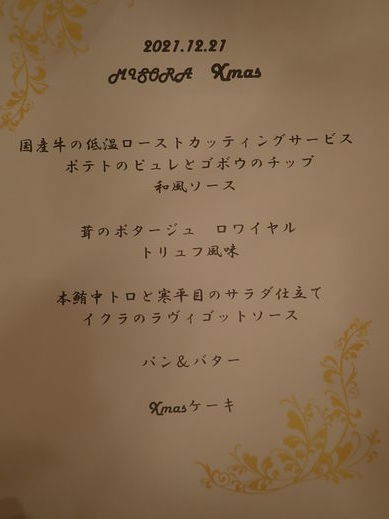 2021.12.21
MISORA Xmas
国産牛の低温ローストカッティングサービス
ポテトのピュレとゴボウのチップ
和風ソース
茸のポタージュ ロワイヤル
トリュフ風味
本鮪中トロと寒平目のサラダ仕立て
イクラのラヴィゴットソース
パン＆バター
Xmasケーキ